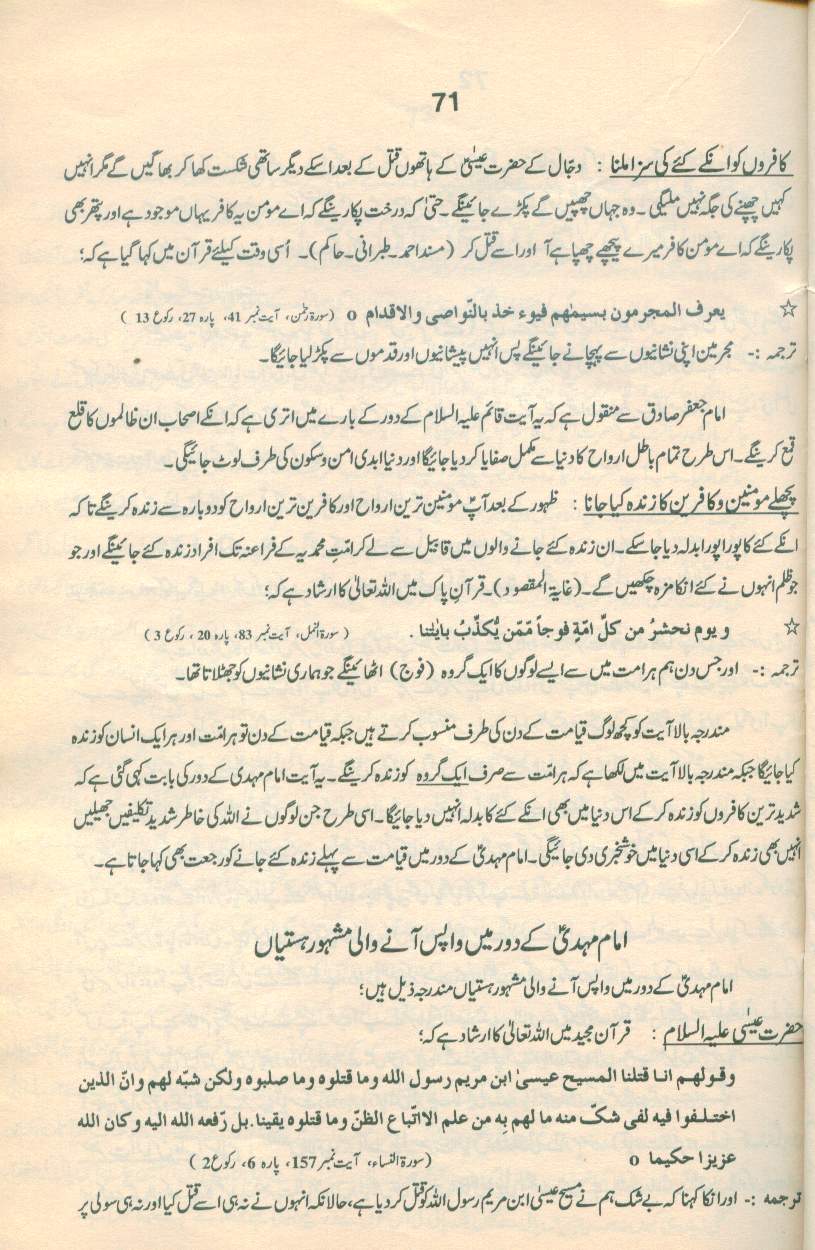 71
کافروں کو انکے کئے کی سزا ملنا : دجّال کے حضرت عیسیٰؑ کے ہاتھوں قتل کے بعد اسکے دیگر ساتھی شکست کھا کر بھاگیں گے مگر انہیں
کہیں چھپنے کی جگہ نہیں ملیگی ۔ وہ جہاں چھپیں گے پکڑے جائینگے ۔ حتیٰ کہ درخت پکارینگے کہ اے مومن یہ کافر یہاں موجود ہے اور پتھر بھی
پکارینگے کہ اے مومن کافر میرے پیچھے چھپا ہے آ اور اسے قتل کر (مسند احمد۔ طبرانی۔ حاکم)۔ اُسی وقت کیلئے قرآن میں کہا گیا ہے کہ؛
☆ یعرف المجرمون بسیمٰھم فیوء خذ بالنّواصی والاقدام o (سورۃ رحمٰن، آیت نمبر 41، پارہ 27، رکوع 13 )
ترجمہ :- مجرمین اپنی نشانیوں سے پہچانے جائینگے پس انہیں پیشانیوں اور قدموں سے پکڑ لیا جائیگا۔
امام جعفر صادق سے منقول ہے کہ یہ آیت قائم علیہ السلام کے دور کے بارے میں اتری ہے کہ انکے اصحاب ان ظالموں کا قلع
قمع کرینگے۔ اس طرح تمام باطل ارواح کا دنیا سے مکمل صفایا کر دیا جائیگا اور دنیا ابدی امن و سکون کی طرف لوٹ جائیگی ۔
پچھلے مومنین و کافرین کا زندہ کیا جانا : ظہور کے بعد آپؑ مومنین ترین ارواح اور کافرین ترین ارواح کو دوبارہ سے زندہ کرینگے تاکہ
انکے کئے کا پورا پورا بدلہ دیا جا سکے۔ ان زندہ کئے جانے والوں میں قابیل سے لے کر امّتِ محمدیہ کے فراعنہ تک افراد زندہ کئے جائینگے اور جو
جو ظلم انہوں نے کئے انکا مزہ چکھیں گے۔ (غایۃ المقصود)۔ قرآن پاک میں اللہ تعالیٰ کا ارشاد ہے کہ؛
☆ و یوم نحشرُ من کلِّ امّةٍ فوجاً ممّن یُّکذّبُ بایٰتنا ۔ ( سورۃ النمل، آیت نمبر 83، پارہ 20 ، رکوع 3 )
ترجمہ :- اور جس دن ہم ہر امت میں سے ایسے لوگوں کا ایک گروہ (فوج) اٹھائینگے جو ہماری نشانیوں کو جھٹلاتا تھا۔
مندرجہ بالا آیت کو کچھ لوگ قیامت کے دن کی طرف منسوب کرتے ہیں جبکہ قیامت کے دن تو ہر امّت اور ہر ایک انسان کو زندہ
کیا جائیگا جبکہ مندرجہ بالا آیت میں لکھا ہے کہ ہر امّت سے صرف ایک گروہ کو زندہ کرینگے ۔ یہ آیت امام مہدی کے دور کی بابت کہی گئی ہے کہ
شدید ترین کافروں کو زندہ کر کے اس دنیا میں بھی انکے کئے کا بدلہ انہیں دیا جائیگا۔ اسی طرح جن لوگوں نے اللہ کی خاطر شدید تکلیفیں جھیلیں
انہیں بھی زندہ کر کے اسی دنیا میں خوشخبری دی جائیگی ۔ امام مہدیؑ کے دور میں قیامت سے پہلے زندہ کئے جانے کو رجعت بھی کہا جاتا ہے۔
امام مہدیؑ کے دور میں واپس آنے والی مشہور ہستیاں
امام مہدیؑ کے دور میں واپس آنے والی مشہور ہستیاں مندرجہ ذیل ہیں؛
حضرت عیسیٰ علیہ السلام : قرآن مجید میں اللہ تعالیٰ کا ارشاد ہے کہ؛
وقولھم انا قتلنا المسیح عیسیٰ ابن مریم رسول الله وما قتلوه وما صلبوه ولکن شبّه لھم وانّ الذین
اختلفوا فیه لفی شکّ منه ما لھم بِه من علم الااتّباع الظنّ وما قتلوه یقینا۔ بل رّفعه الله الیه وکان الله
عزیزا حکیما o (سورۃ النساء، آیت نمبر 157، پارہ 6، رکوع 2 )
ترجمہ :- اور انکا کہنا کہ بے شک ہم نے مسیح عیسیٰ ابن مریم رسول اللہ کو قتل کر دیا ہے، حالانکہ انہوں نے نہ ہی اسے قتل کیا اور نہ ہی سولی پر